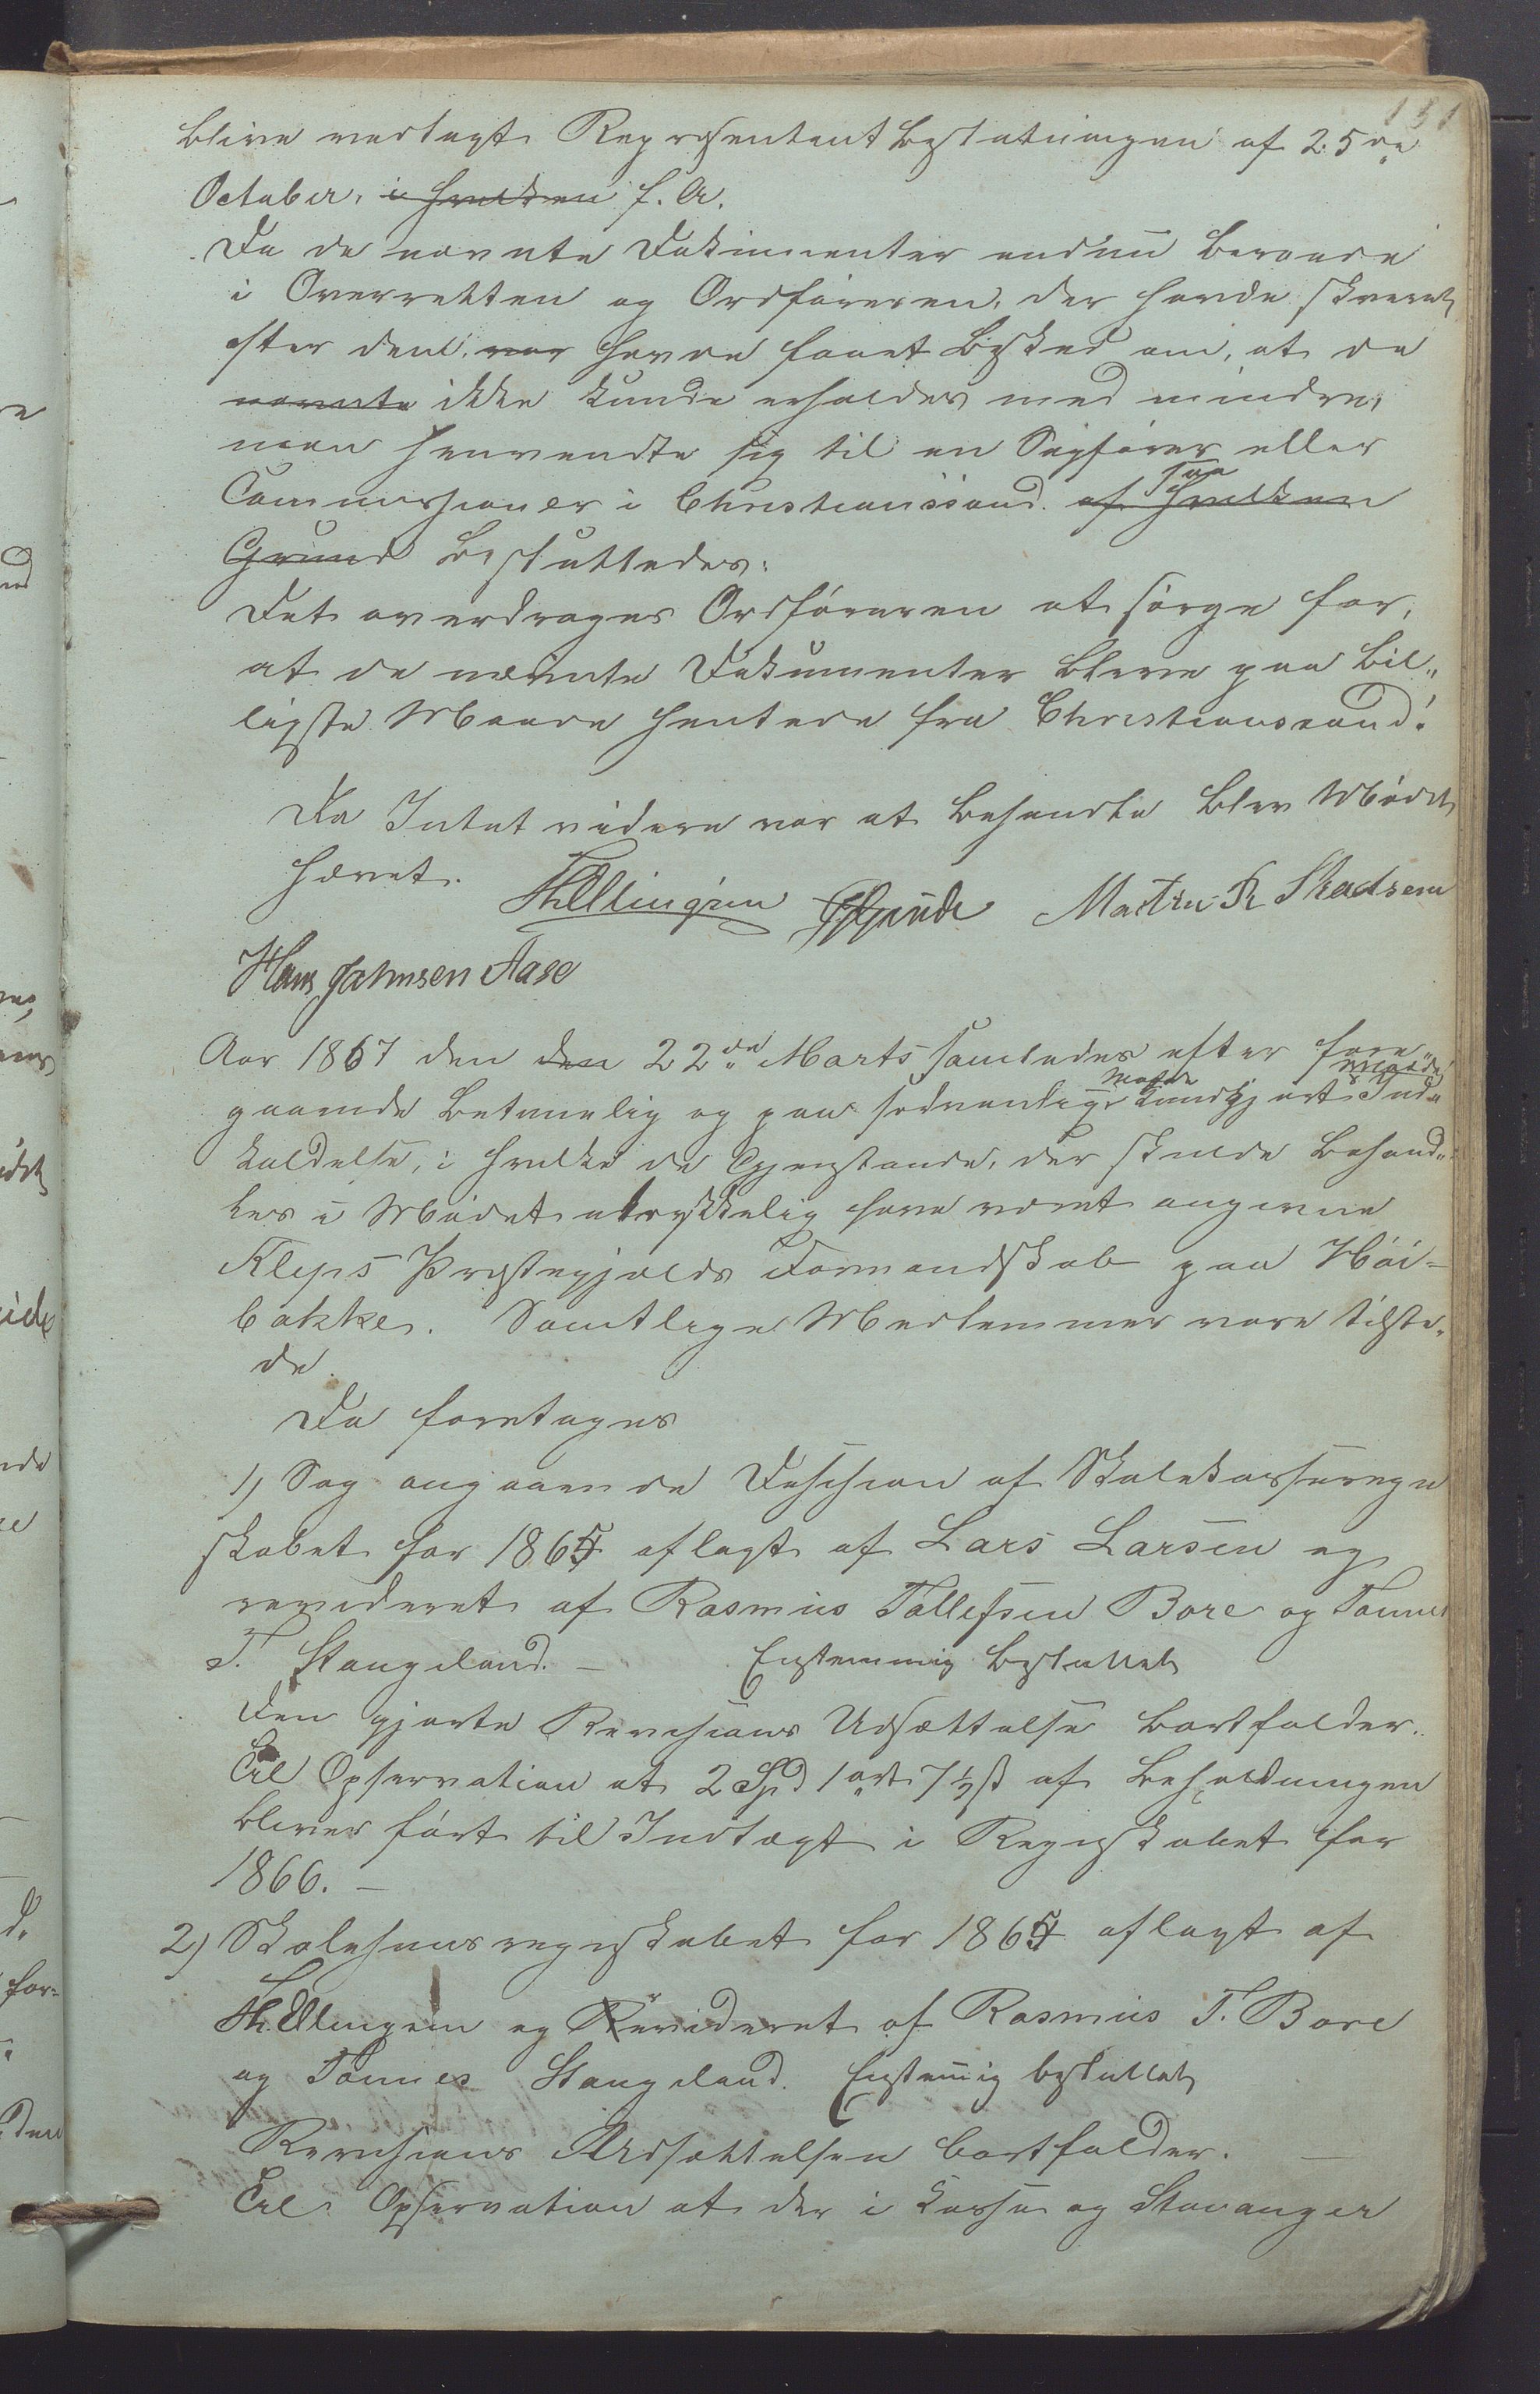 131
blive vedtagt Repræsentantbeslutningen af 25de
October, i hvilken f. A.
Da de nævnte Dokumenter endnu beroede
i Overretten og Ordføreren, der havde skrevet
efter dem, var havde faaet Besked om, at de
nævnte ikke kunde erholdes med mindre,
man henvendte sig til en Sagfører eller
Commissionær i Christianssand. af hvilken
saa
Grund besluttedes:
Det overdrages Ordføreren at sørge for,
at de nævnte Dokumenter bleve paa bil„
ligste Maade hentede fra Christianssand.
Da Intet videre var at behandle blev Mødet
hævet.
Th Ellingsen Martin R Skadsem
Hans Johnsen Aase
Aar 1867 den den 22de Marts samledes efter fore„
gaaende betimelig og paa sedvanlig Maade kundgjort Ind„
kaldelse, i hvilke de Gjenstande, der skulde behand„
les i Mødet udtrykkelig have været angivne
Kleps Præstegjælds Formandskab paa Høi-
bakke. Samtlige Medlemmer vare tilste„
de.
Da foretages
1) Sag angaaende Decision af Skolekasseregn
skabet for 1865 aflagt af Lars Larsen og
revideret af Rasmus Tollefsen Bore og Tønnes
T. Stangeland. — Enstemmig besluttet
Den gjorte Revisions Udsættelse bortfalder.
Til Opservation at 2 Spd 1 ort 7½ ß af Beholdningen
bliver ført til Indtægt i Regnskabet for
1866. —
2) Skolehusregnskabet for 1865 aflagt af
Th. Ellingsen og Revideret af Rasmus T. Bore
og Tønnes Stangeland. Enstemig besluttet
Revisions Udsættelsen bortfalder. —
Til Opservation at der i Kasse og Stavanger